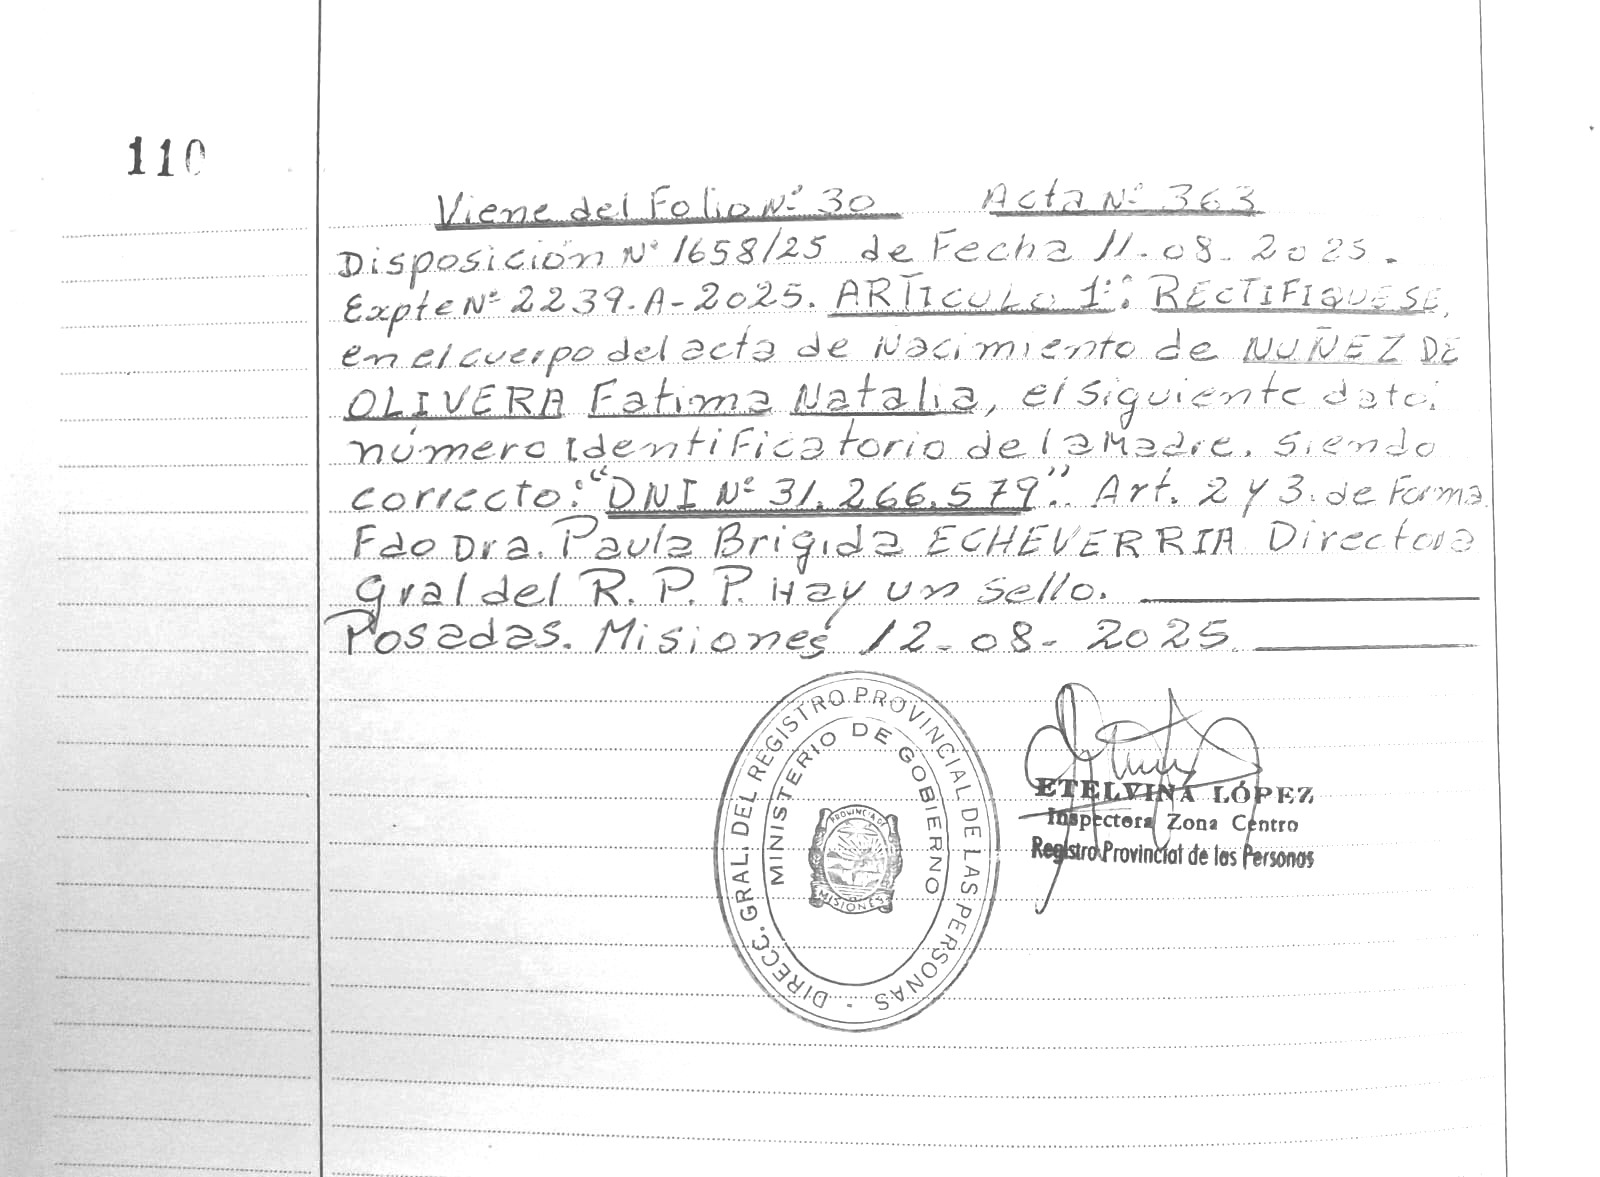 110
Viene del Folio Nº 30 Acta Nº 363
Disposición Nº 1658/25 de Fecha 11-08-2025.
Expte Nº 2239-A-2025. ARTICULO 1º: RECTIFIQUESE,
en el cuerpo del acta de Nacimiento de NUÑEZ DE
OLIVERA Fatima Natalia, el siguiente dato:
número identificatorio de la Madre. Siendo
correcto: "DNI Nº 31.266.579". Art. 2 y 3. de Forma
Fdo Dra. Paula Brigida ECHEVERRIA Directora
Gral del R.P.P. Hay un sello.
Posadas. Misiones 12-08-2025.
DIRECC. GRAL. DEL REGISTRO PROVINCIAL DE LAS PERSONAS -
MINISTERIO DE GOBIERNO
PROVINCIA DE
MISIONES
ETELVINA LÓPEZ
Inspectora Zona Centro
Registro Provincial de las Personas